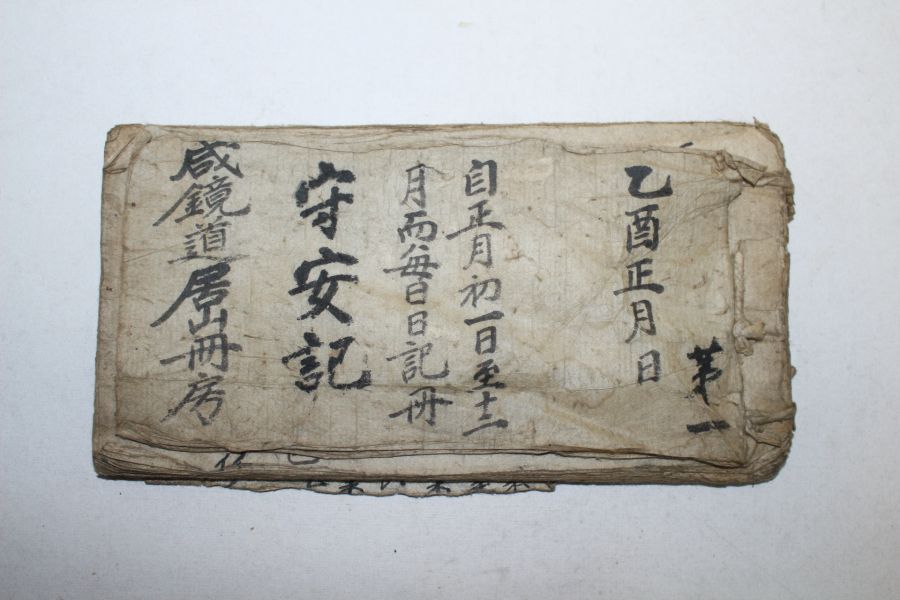 第一
乙酉正月 日
自正月初一日至十二
月而每日日記冊
守安記
咸鏡道居山冊房